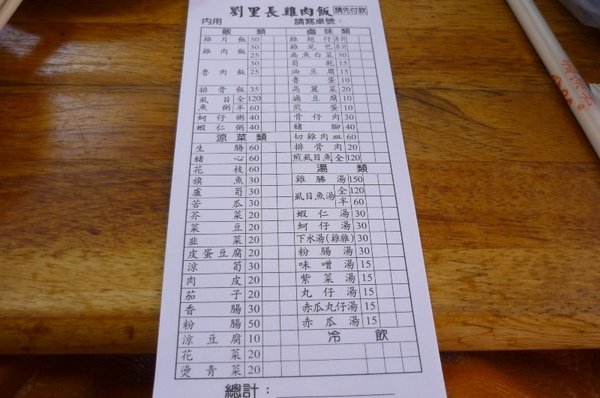 劉里長雞肉飯 請先付款
內用 請寫桌號：
飯類
雞肉飯 50
雞肉飯 30
25
魯肉飯 30
25
排骨飯 35
虱目魚粥 全 120
半 60
蚵仔粥 40
蝦仁粥 40
涼菜類
生腸 60
豬心 60
花枝 60
旗魚 30
蘆筍 30
苦瓜 30
芥菜 20
菜豆 20
韭菜 20
皮蛋豆腐 20
涼筍 30
肉皮 20
茄子 20
香腸 30
粉腸 50
涼豆腐 10
花菜 20
燙青菜 20
滷味類
雞翅仔
雞尾巴
扁魚白菜 30
筍乾 15
油豆腐 10
魯蛋 10
高麗菜 20
滷豆腐 10
煎蛋 10
骨仔肉 30
豬腳 40
切雞肉皿 60
排骨肉 20
煎虱目魚 全 120
湯類
雞腸湯 150
虱目魚湯 全 120
半 60
蝦仁湯 30
蚵仔湯 30
下水湯(雞雜) 30
粉腸湯 30
味噌湯 15
紫菜湯 15
丸仔湯 15
赤瓜丸仔湯 15
赤瓜湯 15
冷飲
總計：